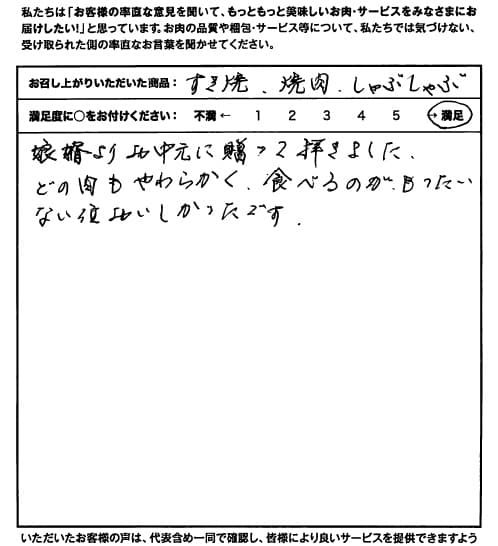 私たちは「お客様の率直な意見を聞いて、もっともっと美味しいお肉・サービスをみなさまにお
届けしたい!」と思っています。お肉の品質や梱包・サービス等について、私たちでは気づけない、
受け取られた側の率直なお言葉を聞かせてください。
お召し上がりいただいた商品： すき焼、焼肉、しゃぶしゃぶ
満足度に○をお付けください： 不満 ← 1 2 3 4 5 → 満足
娘婿よりお中元に贈って頂きました。
どの肉もやわらかく、食べるのがもったい
ない位おいしかったです。
いただいたお客様の声は、代表含め一同で確認し、皆様により良いサービスを提供できますよう